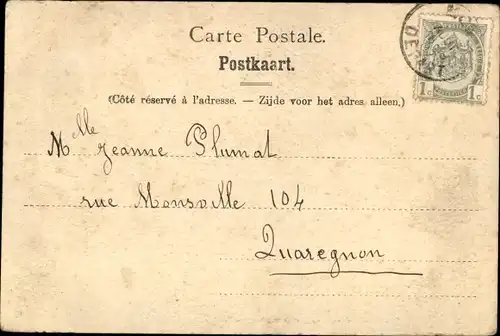 Carte Postale.
Postkaart.
(Côté réservé à l'adresse. — Zijde voor het adres alleen.)
1c 1c
Mlle Jeanne Plumat
rue Monsville 104
Quaregnon